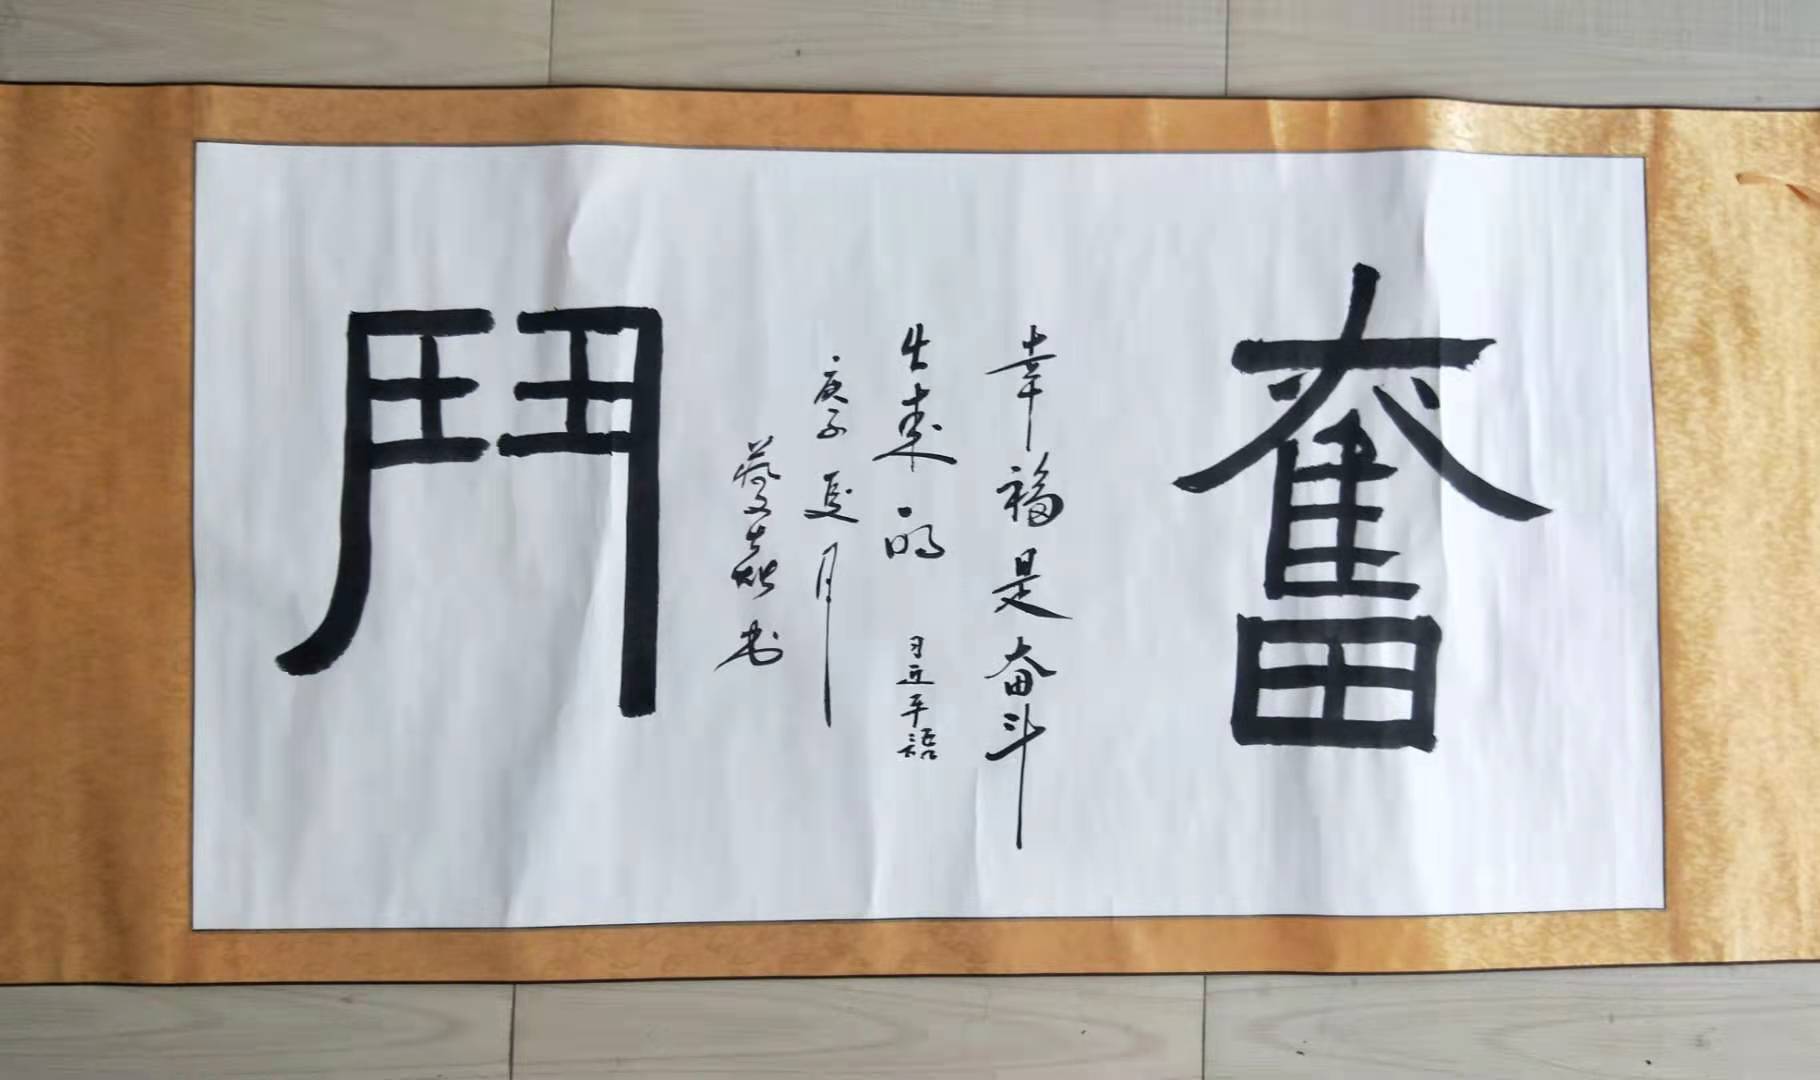 奮
幸福是奋斗
出来的 习近平語
庚子夏月
书
鬥